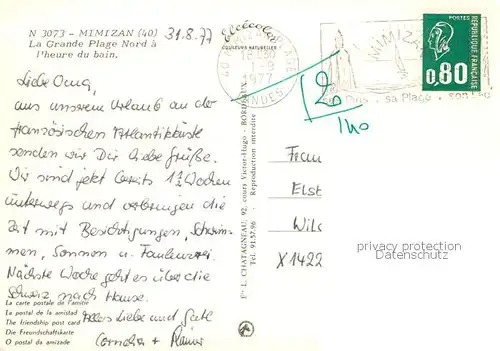 N 3073 - MIMIZAN (40)
La Grande Plage Nord à
l'heure du bain.
31.8.77
élcécolor
COULEURS NATURELLES
40 MIMIZAN PLAGE
1977
LANDES
MIMIZAN
sa Plage
POSTES
0,80
REPUBLIQUE FRANÇAISE
20
140
Liebe Oma,
aus unserem Urlaub an der
französischen Atlantikküste
senden wir Dir liebe Grüße.
Wir sind jetzt bereits 1 1/2 Wochen
unterwegs und verbringen die
Zeit mit Besichtigungen, Schwim-
men, Sonnen u. Faulenzerei.
Nächste Woche geht es über die
Schweiz nach Hause.
Alles Liebe und Gute
Cornelia + Rainer
La carte postale de l'amitié
La postal de la amistad
The friendship post card
Die Freundschaftskarte
O postal da amizade
Ets L. CHATAGNEAU, 92, cours Victor-Hugo - BORDEAUX
Tél. 91.57.96 - Reproduction interdite
Elst
X 1422
privacy protection
AnsichtskartenAK